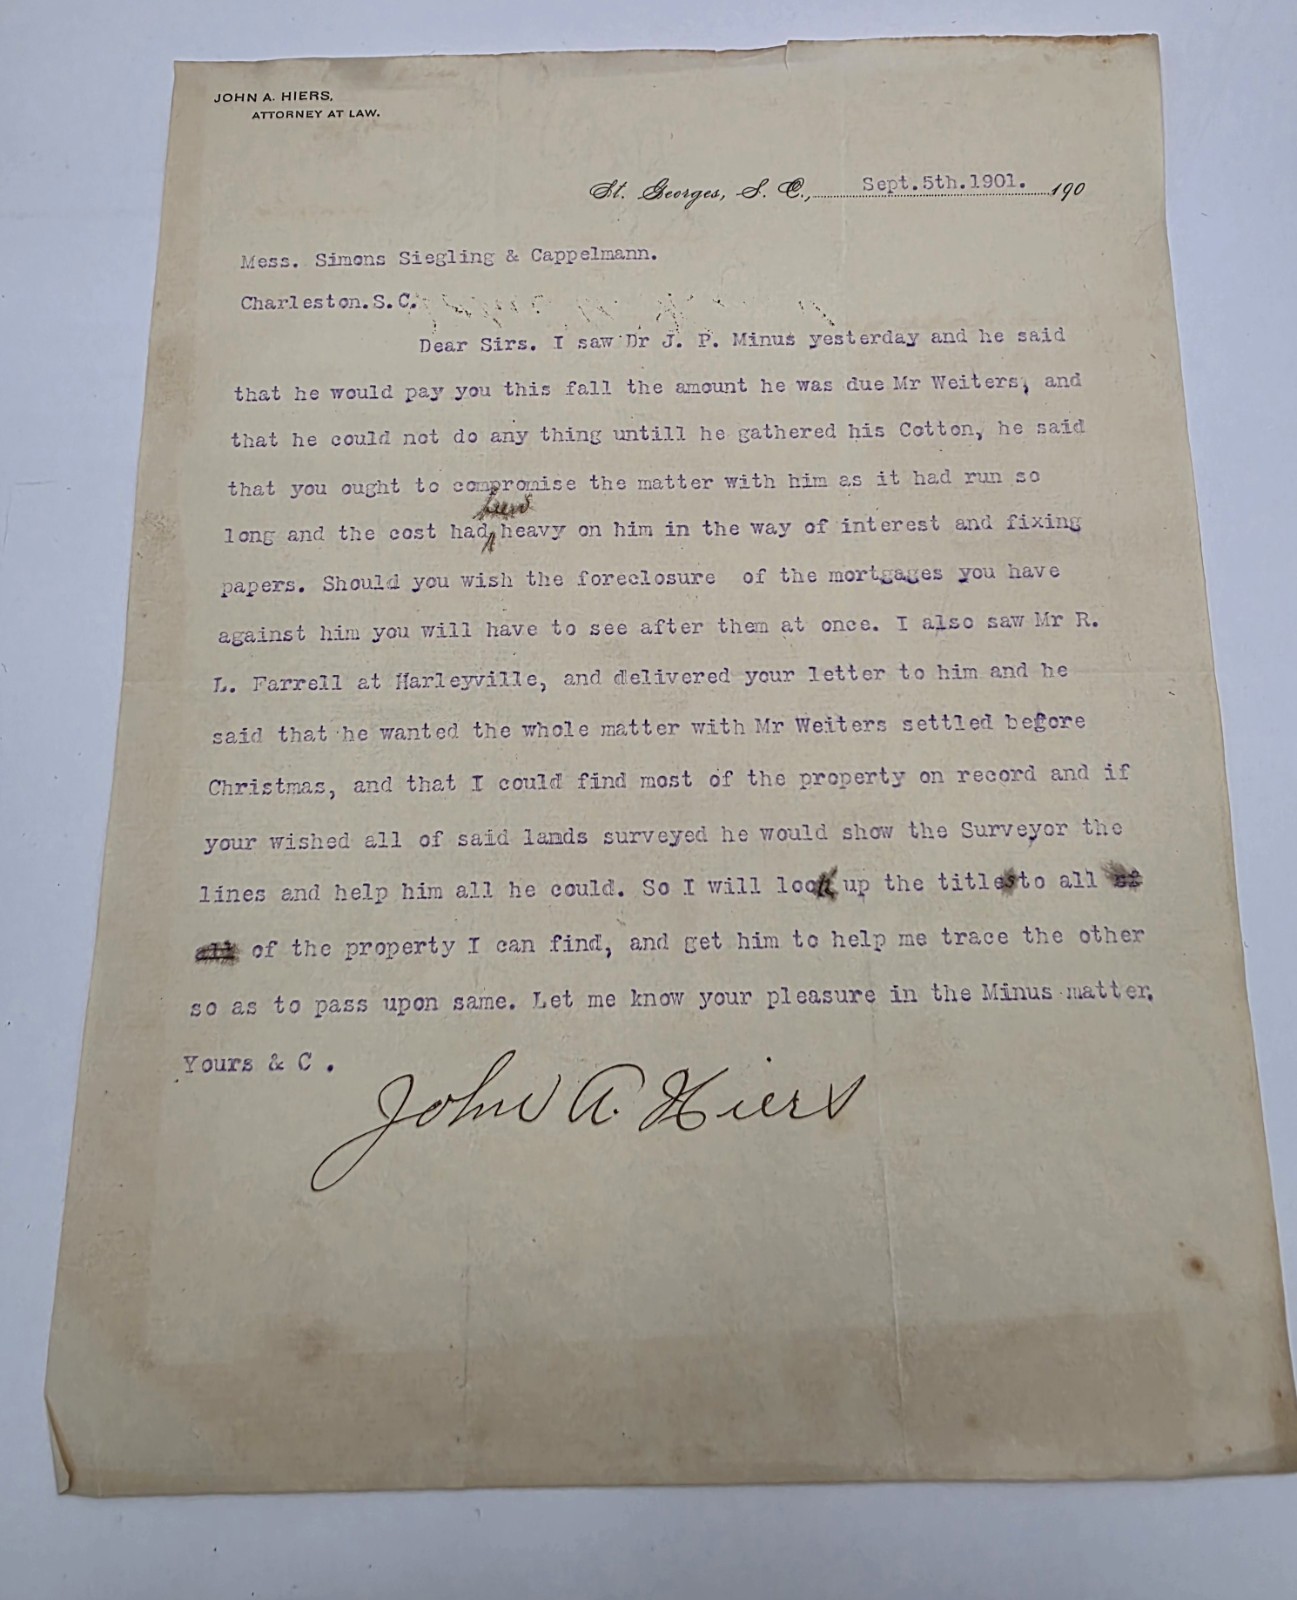 JOHN A. HIERS,
ATTORNEY AT LAW.
St. Georges, S. C., Sept.5th.1901. 190
Mess. Simons Siegling & Cappelmann.
Charleston.S.C.
Dear Sirs. I saw Dr J. P. Minus yesterday and he said
that he would pay you this fall the amount he was due Mr Weiters, and
that he could not do any thing untill he gathered his Cotton, he said
that you ought to compromise the matter with him as it had run so
long and the cost had been heavy on him in the way of interest and fixing
papers. Should you wish the foreclosure of the mortgages you have
against him you will have to see after them at once. I also saw Mr R.
L. Farrell at Harleyville, and delivered your letter to him and he
said that he wanted the whole matter with Mr Weiters settled before
Christmas, and that I could find most of the property on record and if
your wished all of said lands surveyed he would show the Surveyor the
lines and help him all he could. So I will look up the titles to all of
all of the property I can find, and get him to help me trace the other
so as to pass upon same. Let me know your pleasure in the Minus matter.
Yours & C .
John A. Hiers